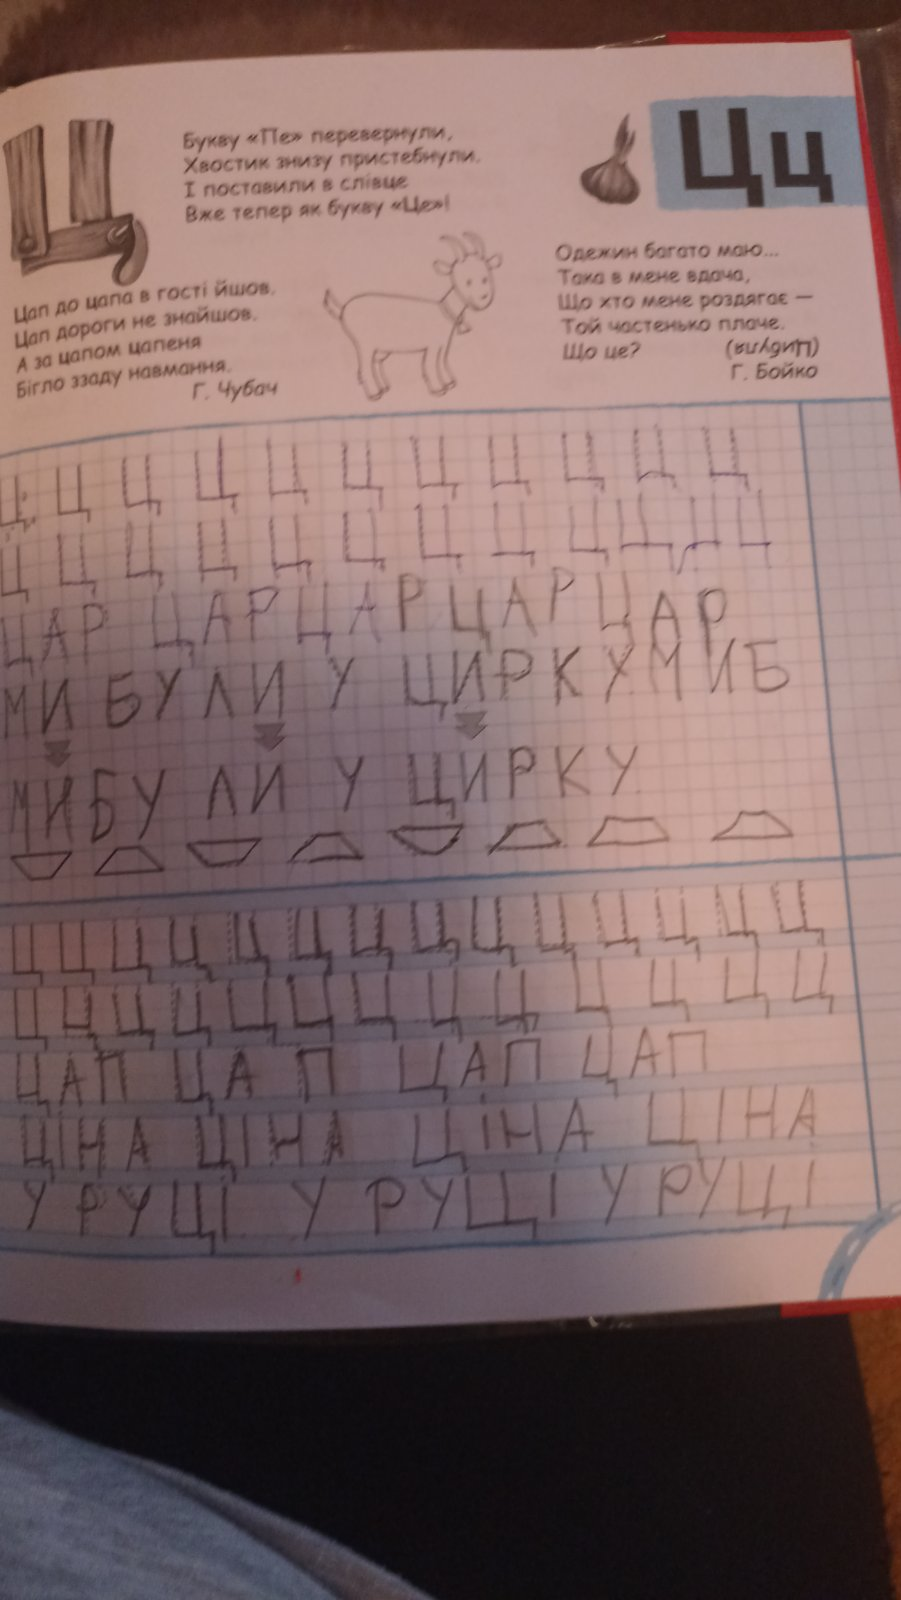 Букву «Пе» перевернули,
Хвостик знизу пристебнули.
І поставили в слівце
Вже тепер як букву «Це»!
Цц
Цап до цапа в гості йшов.
Цап дороги не знайшов.
А за цапом цапеня
Бігло ззаду навмання.
Г. Чубач
Одежин багато маю...
Така в мене вдача,
Що хто мене роздягає —
Той частенько плаче.
Що це? (Цибуля)
Г. Бойко
Ц Ц Ц Ц Ц Ц Ц Ц Ц Ц Ц
Ц Ц Ц Ц Ц Ц Ц Ц Ц Ц Ц Ц
ЦАР ЦАР ЦАР ЦАР ЦАР
МИ БУЛИ У ЦИРКУ МИБ
МИ БУ ЛИ У ЦИРКУ
Ц Ц Ц Ц Ц Ц Ц Ц Ц Ц Ц Ц Ц Ц
Ц Ц Ц Ц Ц Ц Ц Ц Ц Ц Ц Ц Ц
ЦАП ЦАП ЦАП ЦАП
ЦІНА ЦІНА ЦІНА ЦІНА
У РУЦІ У РУЦІ У РУЦІ